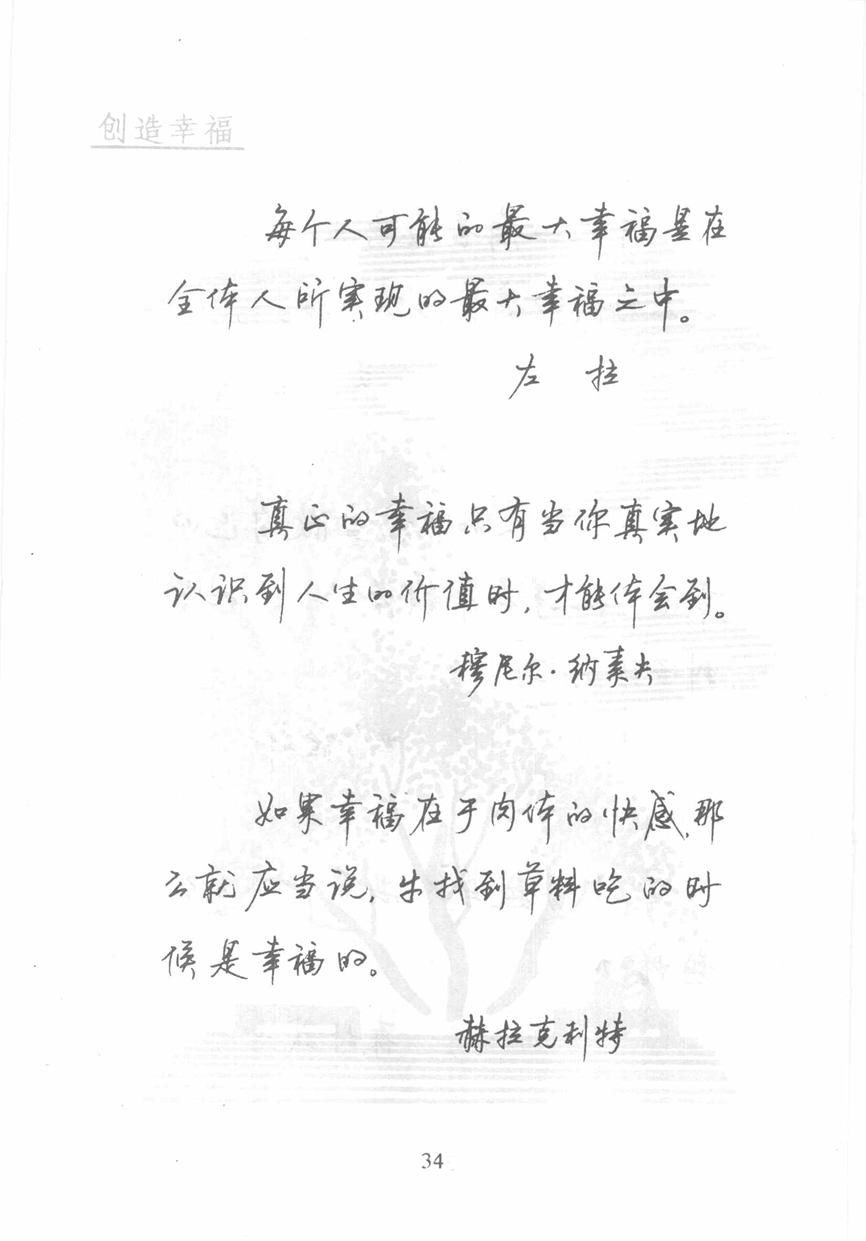 创造幸福
每个人可能的最大幸福是在
全体人所实现的最大幸福之中。
左 拉
真正的幸福只有当你真实地
认识到人生的价值时，才能体会到。
穆尼尔·纳素夫
如果幸福在于肉体的快感，那
么就应当说，牛找到草料吃的时
候是幸福的。
赫拉克利特
34